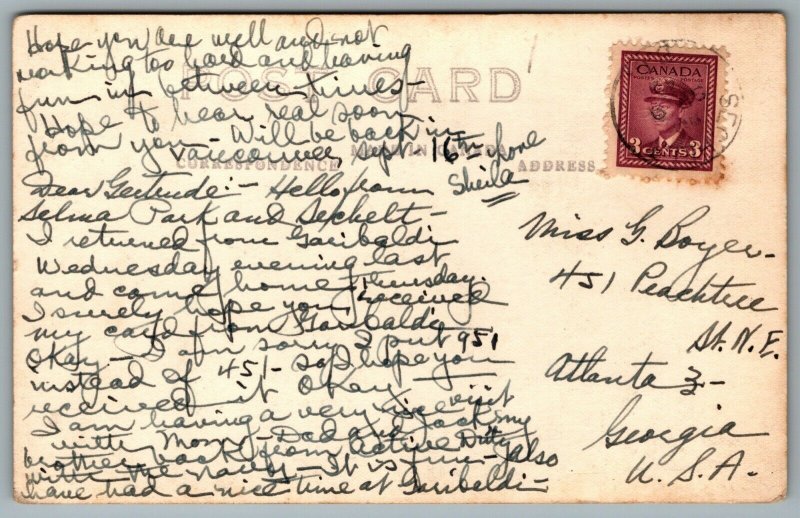 Hope you are well and not
working too hard and having
fun in between times-
Hope to hear real soon
from you - Will be back in
Vancouver, Sept - 16th Love
Sheila
POST CARD
MADE IN CANADA
CORRESPONDENCE
ADDRESS
Dear Gertrude:- Hello from
Selma Park and Sechelt -
I returned from Garibaldi
Wednesday evening last
and came home Thursday.
I surely hope you received
my card from Garibaldi
Okay - I am sorry I put 951
instead of 451 - So I hope you
received it Okay -
I am having a very nice visit
with Mom - Dad and Jack my
brother back from Active Duty
with the navy - It is fun - also
have had a nice time at Garibaldi -
CANADA
POSTES POSTAGE
3 CENTS 3
Miss G. Boyer -
451 Peachtree
St. N.E.
Atlanta 3 -
Georgia
U.S.A -